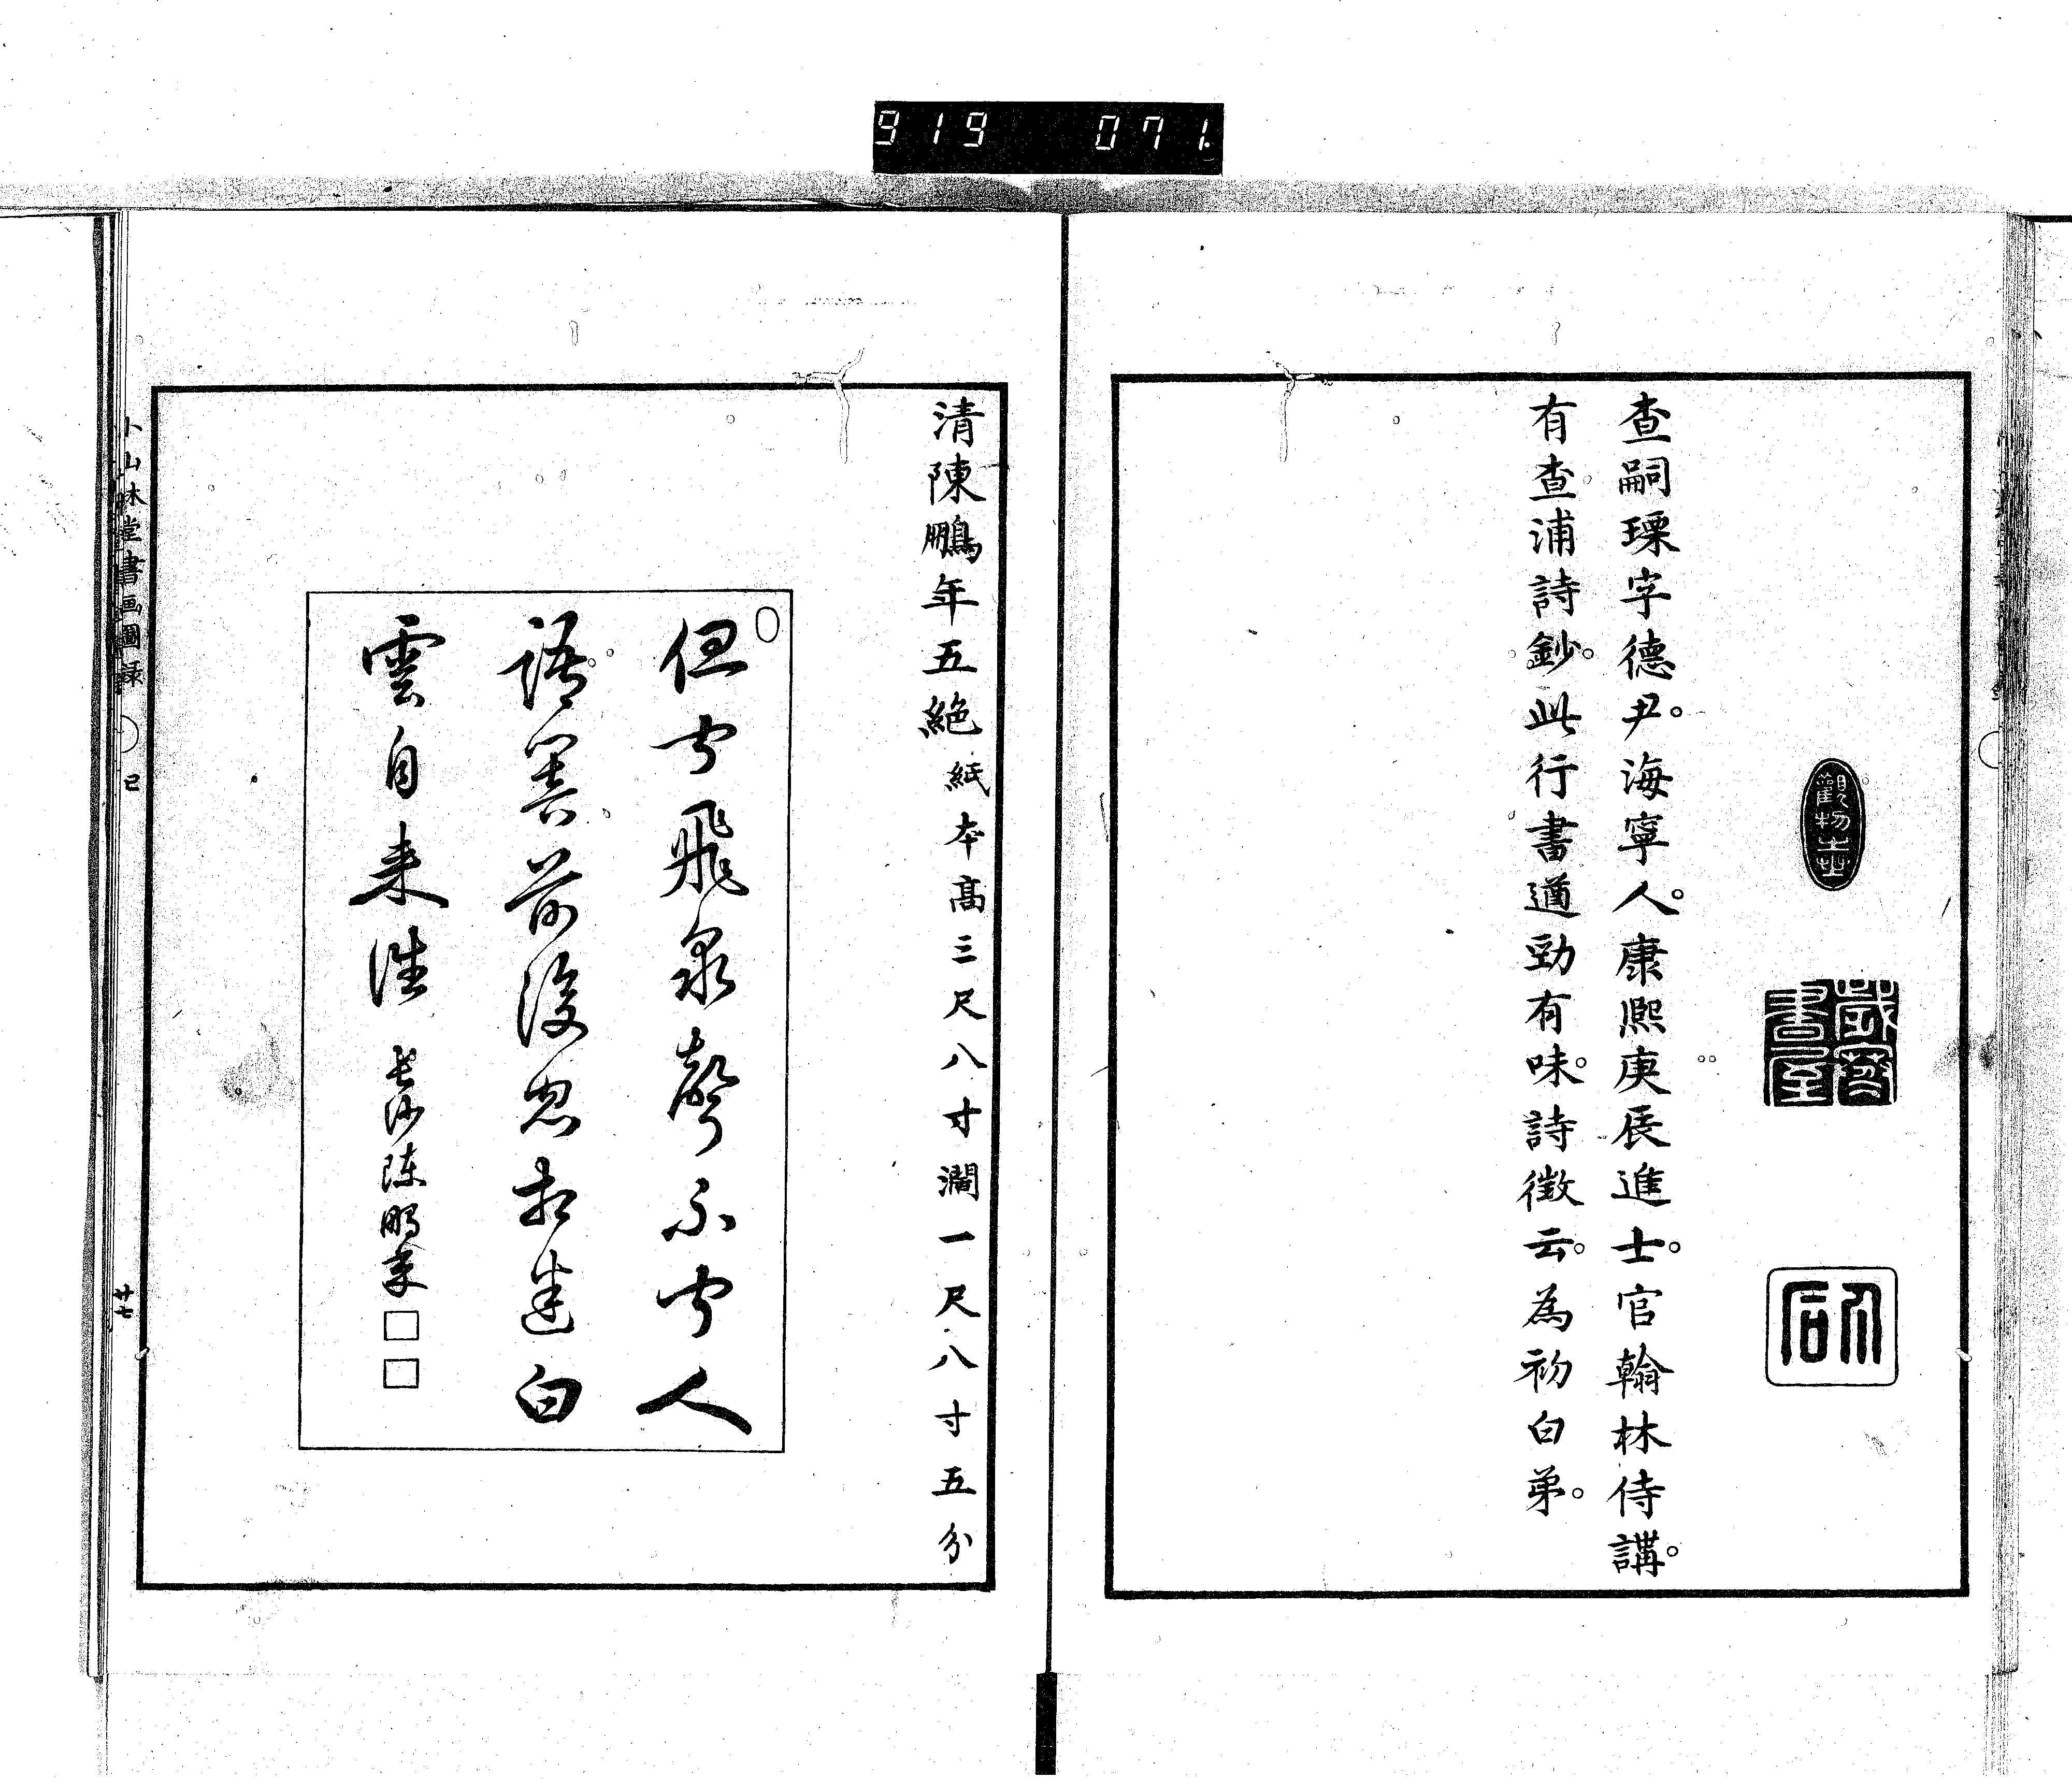 919 071.
查嗣瑮字德尹。海寧人。康熙庚辰進士。官翰林侍講。
有查浦詩鈔。此行書遒勁有味。詩徵云。為初白弟。
清陳鵬年五絕 紙本高三尺八寸濶一尺八寸五分
但聞飛泉聲不聞人
語響前後忽相迷白
雲自来往 長沙陳鵬年
小山林堂書画圖録 巳 廿七